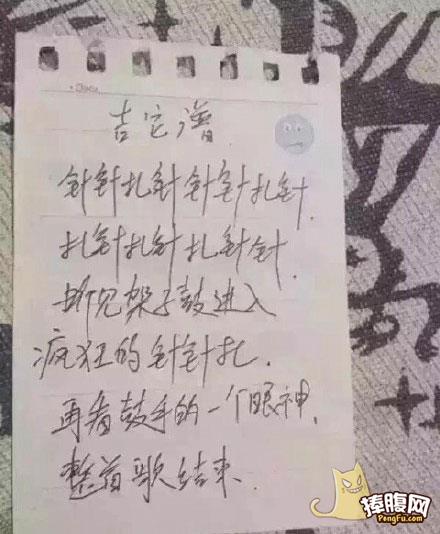 吉它谱
针针扎针针针扎针
扎针扎针扎针针
听见架子鼓进入
疯狂的针针扎.
再看鼓手的一个眼神,
整首歌结束.
捧腹网
PengFu.com